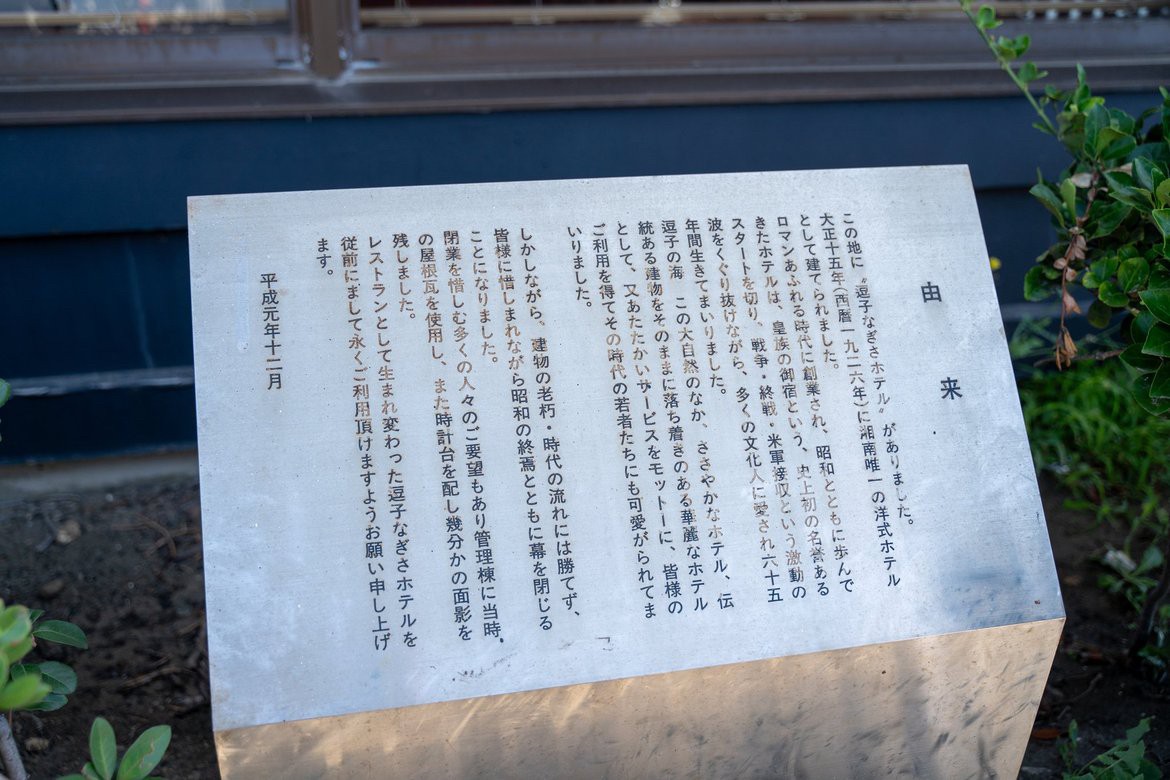 由来
この地に〝逗子なぎさホテル〟がありました。
大正十五年(西暦一九二六年)に湘南唯一の洋式ホテル
として建てられました。
ロマンあふれる時代に創業され、昭和とともに歩んで
きたホテルは、皇族の御宿という、史上初の名誉ある
スタートを切り、戦争・終戦・米軍接収という激動の
波をくぐり抜けながら、多くの文化人に愛され六十五
年間生きてまいりました。
逗子の海 この大自然のなか、ささやかなホテル、伝
統ある建物をそのままに落ち着きのある華麗なホテル
として、又あたたかいサービスをモットーに、皆様の
ご利用を得てその時代の若者たちにも可愛がられてま
いりました。
しかしながら、建物の老朽・時代の流れには勝てず、
皆様に惜しまれながら昭和の終焉とともに幕を閉じる
ことになりました。
閉業を惜しむ多くの人々のご要望もあり管理棟に当時、
の屋根瓦を使用し、また時計台を配し幾分かの面影を
残しました。
レストランとして生まれ変わった逗子なぎさホテルを
従前にまして永くご利用頂けますようお願い申し上げ
ます。
平成元年十二月